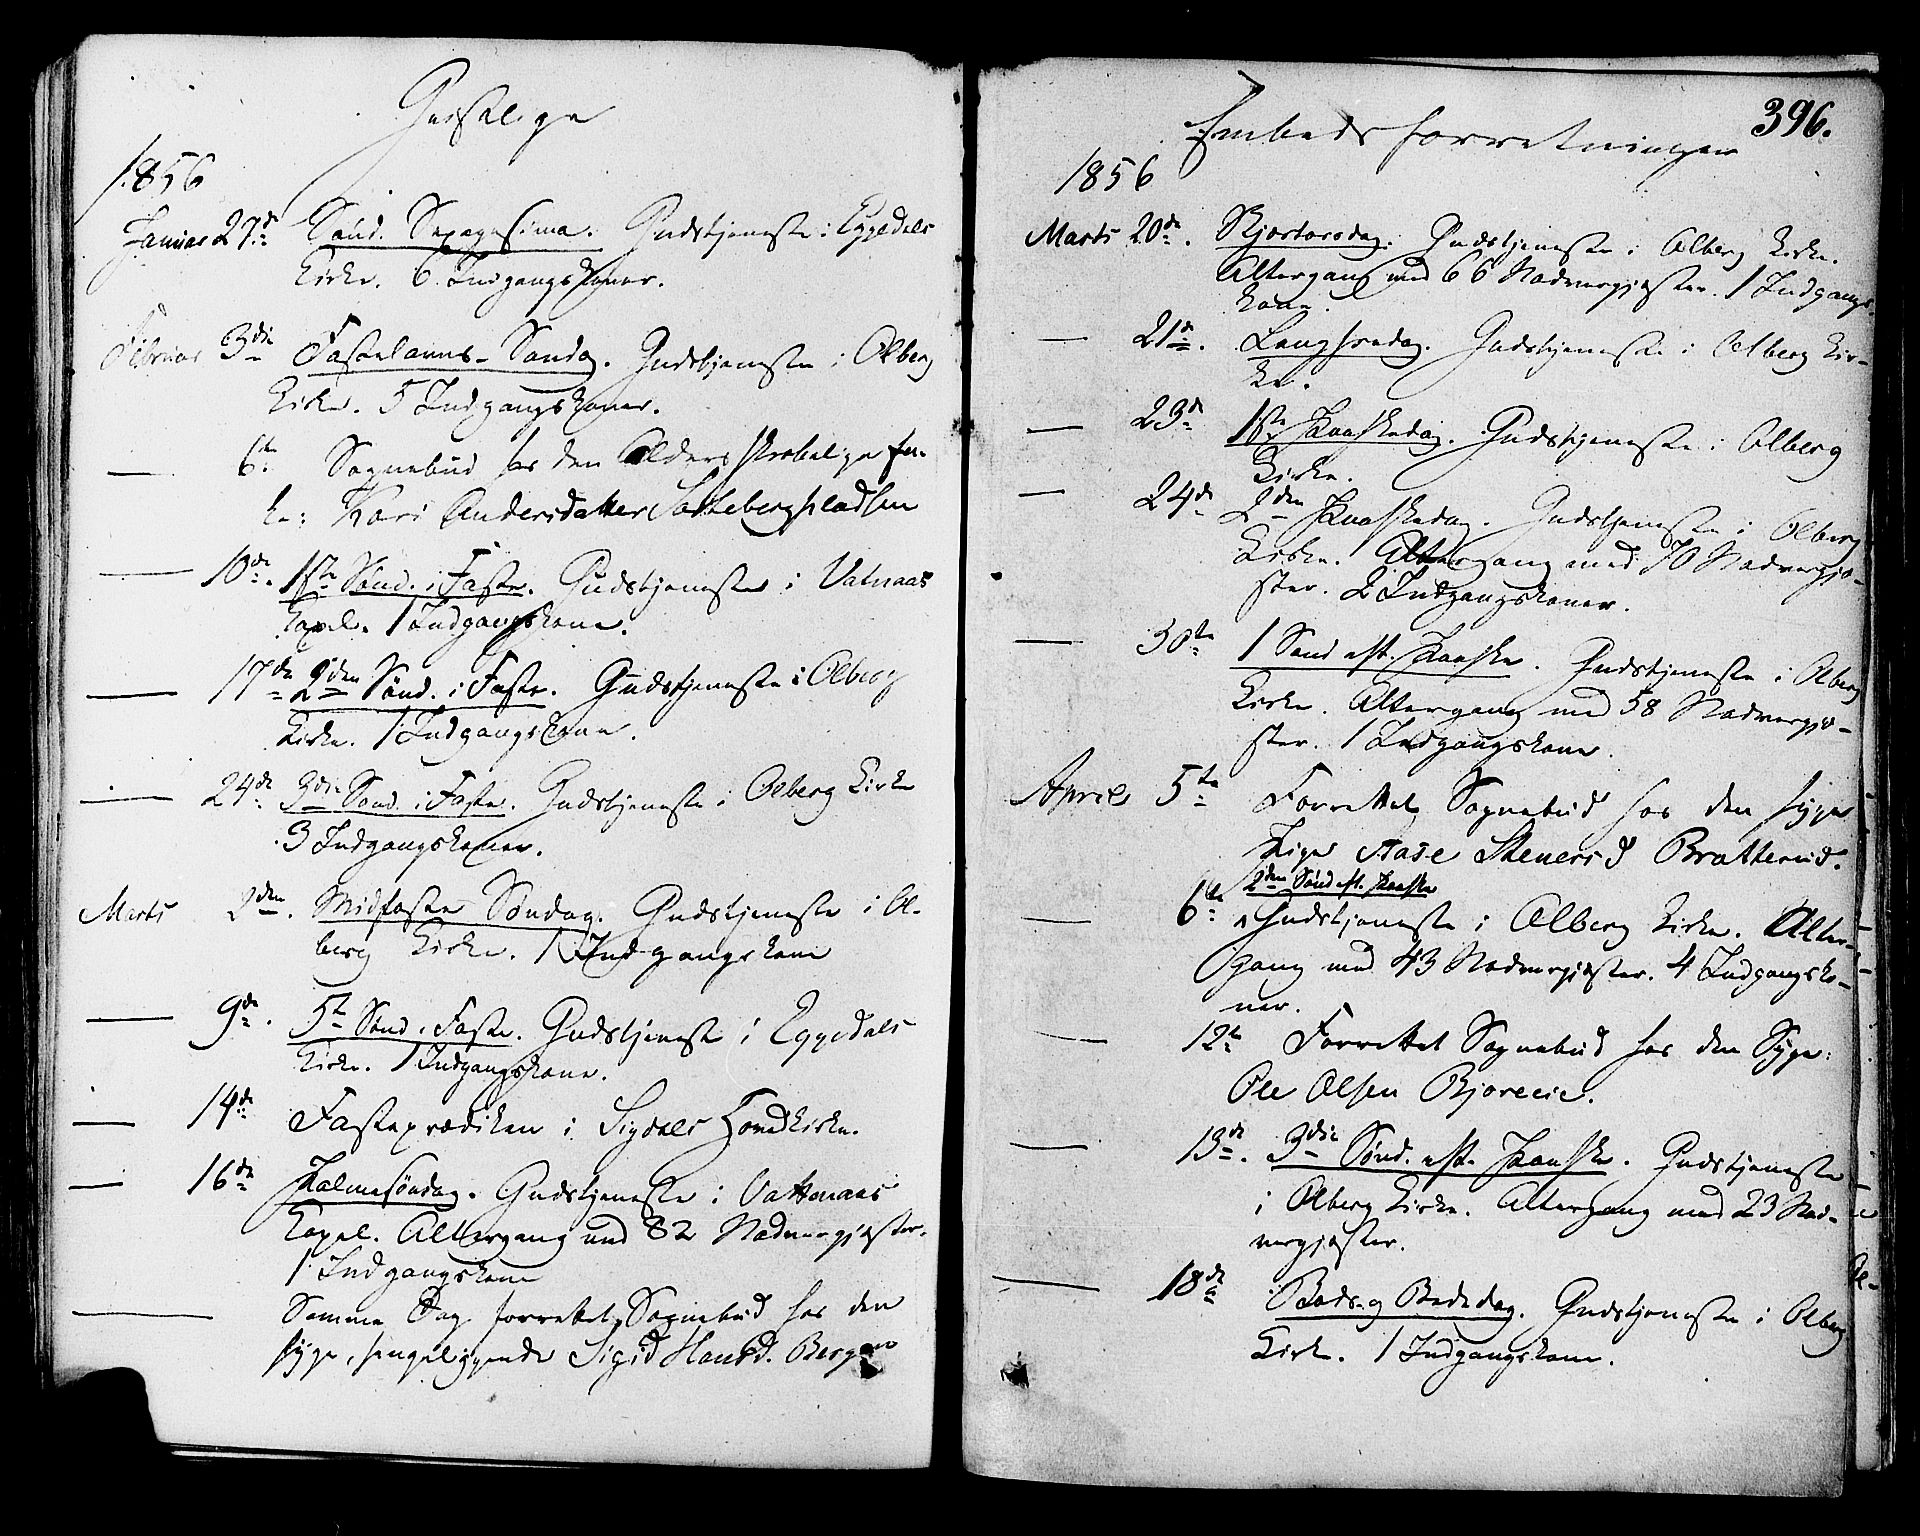 Geistlige
1856
Januar 27de Sönd. Sexagesima. Gudstjeneste i Eggedals
Kirke. 6 Indgangskoner.
Februar 3die Fastelavns-Söndag. Gudstjeneste i Olberg
Kirke. 5 Indgangskoner.
— 6te Sognebud hos den Alders skrøbelige En-
ke: Kari Andersdatter Solleberghladsen
— 10de. 1ste Sönd. i Faste. Gudstjeneste i Vatnaas
Capel. 1 Indgangskone.
— 17de 2den Sönd. i Faste. Gudstjeneste i Olberg
Kirke. 1 Indgangskone.
— 24de 3die Sönd. i Faste. Gudstjeneste i Olberg Kirke
3 Indgangskoner.
Marts 2den. Midfaste Söndag. Gudstjeneste i Ol-
berg Kirke. 1 Indgangskone
— 9de. 5te Sönd. i Faste. Gudstjeneste i Eggedals
Kirke. 1 Indgangskone.
— 14de Fasteprædiken i Sigdals Hovedkirke.
— 16de Palmesöndag. Gudstjeneste i Vattnaas
Capel. Altergang med 82 Nadvergjæster.
1 Indgangskone
— Samme Dag forrettet Sognebud hos den
syge, sengeliggende Sigrid Hansd. Bergan
Embedsforretninger
396.
1856
Marts 20de. Skjærtorsdag. Gudstjeneste i Olberg Kirke.
Altergang med 66 Nadvergjæster. 1 Indgangs
kone.
— 21de. Langfredag. Gudstjeneste i Olberg Kir-
ke.
— 23de 1ste Paaskedag. Gudstjeneste i Olberg
Kirke.
— 24de 2den Paaskedag. Gudstjeneste i Olberg
Kirke. Altergang med 70 Nadvergjæ-
ster. 2 Indgangskoner.
— 30te 1 Sønd eft. Paaske. Gudstjeneste i Olberg
Kirke. Altergang med 58 Nadvergjæ-
ster. 1 Indgangskone.
April 5te Forrettet Sognebud hos den syge
Pige Aase Steners D Bratterud.
2den Sönd eft. Paaske
— 6te Gudstjeneste i Olberg Kirke. Alter-
gang med 43 Nadvergjæster. 4 Indgangsko-
ner.
— 12te Forrettet Sognebud hos den Syge:
Ole Olsen Bjoreeie.
— 13de. 3die Sönd. eft. Paaske. Gudstjeneste
i Olberg Kirke. Altergang med 23 Nad-
vergjæster.
— 18de Bods- og Bededag. Gudstjeneste i Olberg
Kirke. 1 Indgangskone.